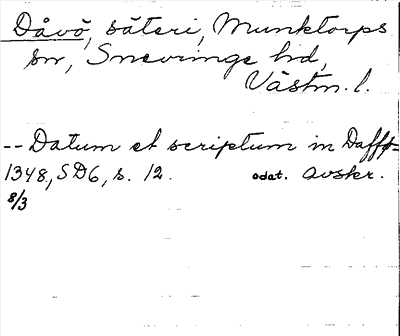 Dåvö, säteri, Munktorps
sn, Snevringe hd,
Västm. l.
-- Datum et scriptum in Daffø=
1348, SD6, s. 12. odat. avskr.
8/3